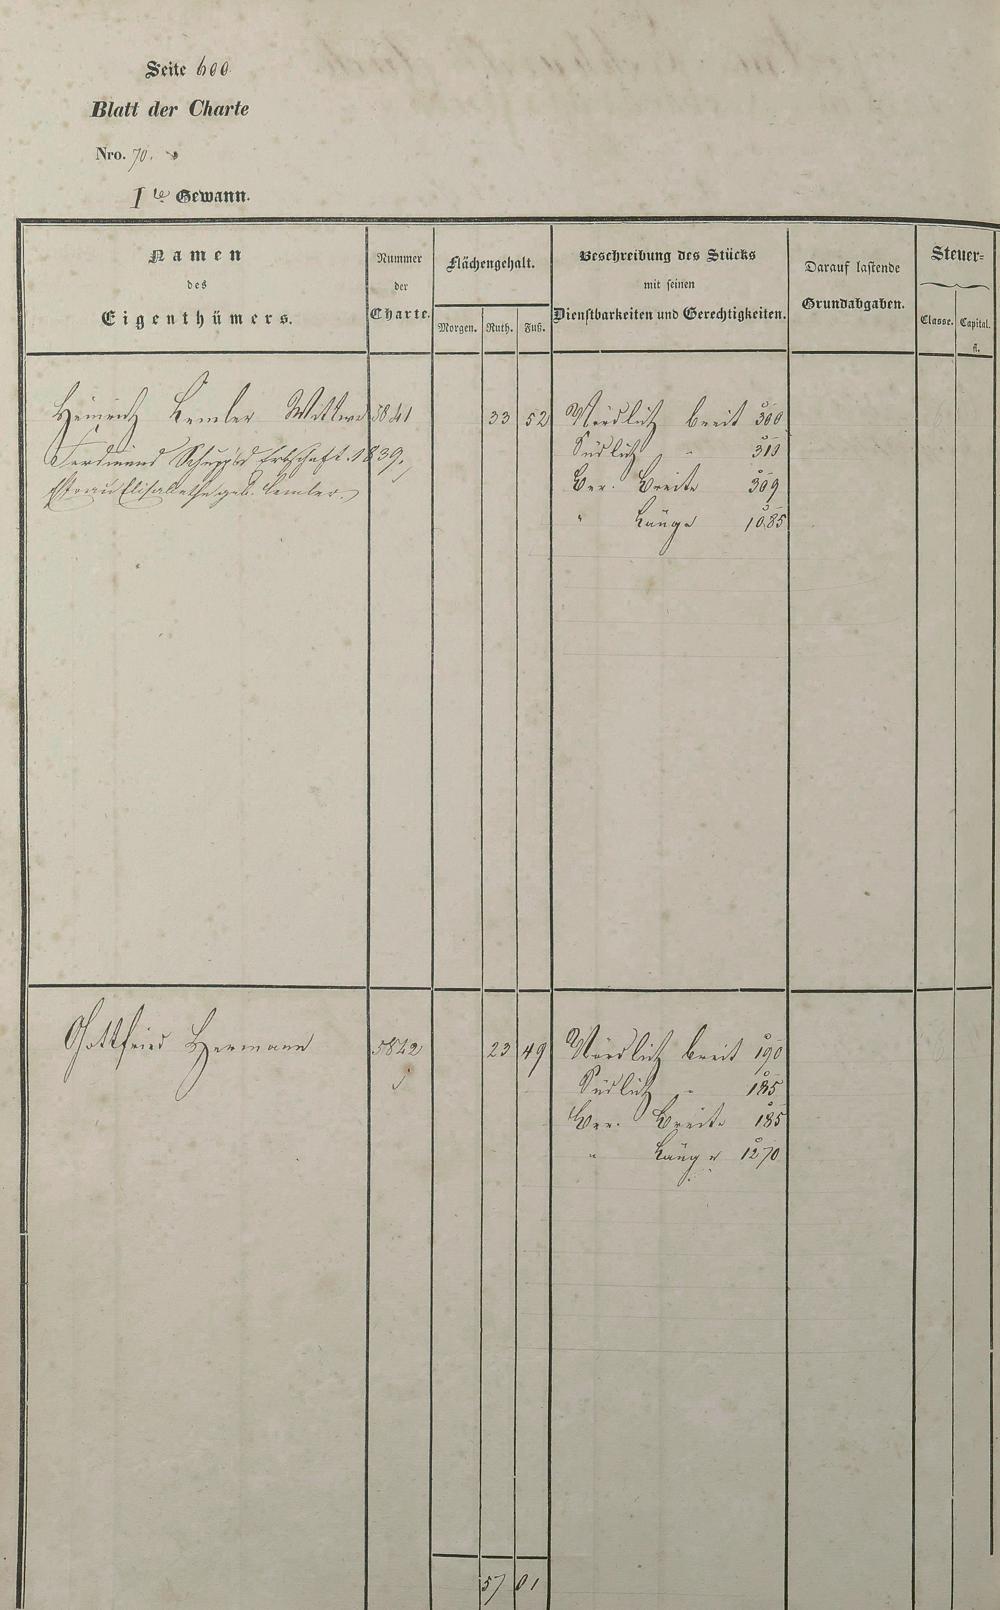 Seite 600
Blatt der Charte
Nro. 70.
I te Gewann.
Namen
des
Eigenthümers.
Nummer
der
Charte.
Flächengehalt.
Morgen. Ruth. Fuß.
Beschreibung des Stücks
mit seinen
Dienstbarkeiten und Gerechtigkeiten.
Darauf lastende
Grundabgaben.
Steuer=
Classe. Capital.
fl.
Heinrich Lemler Wittwe 5841 33 52 Nördlich breit 300
Ferdinand Schupp's Erbschaft. 1839. Südlich " 310
Ehefrau Elisabethe geb. Lemler. Ber. Breite 309
" Länge 1085
Gottfried Hermann 5842 23 49 Nördlich breit 190
Südlich " 185
Ber. Breite 185
" Länge 1270
57 01